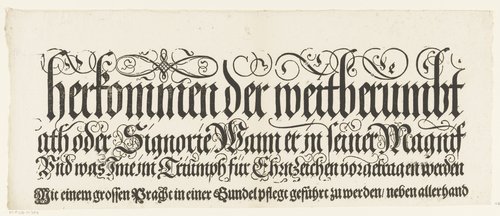 herkommen der weitberumbt
ath oder Signorie Wann er in seiner Magnif
Vnd was Jme im Triumph für Ehrtzeichen vorgetragen werden
Mit einem grossen Pracht in einer Gundel pflegt geführt zu werden / neben allerhand